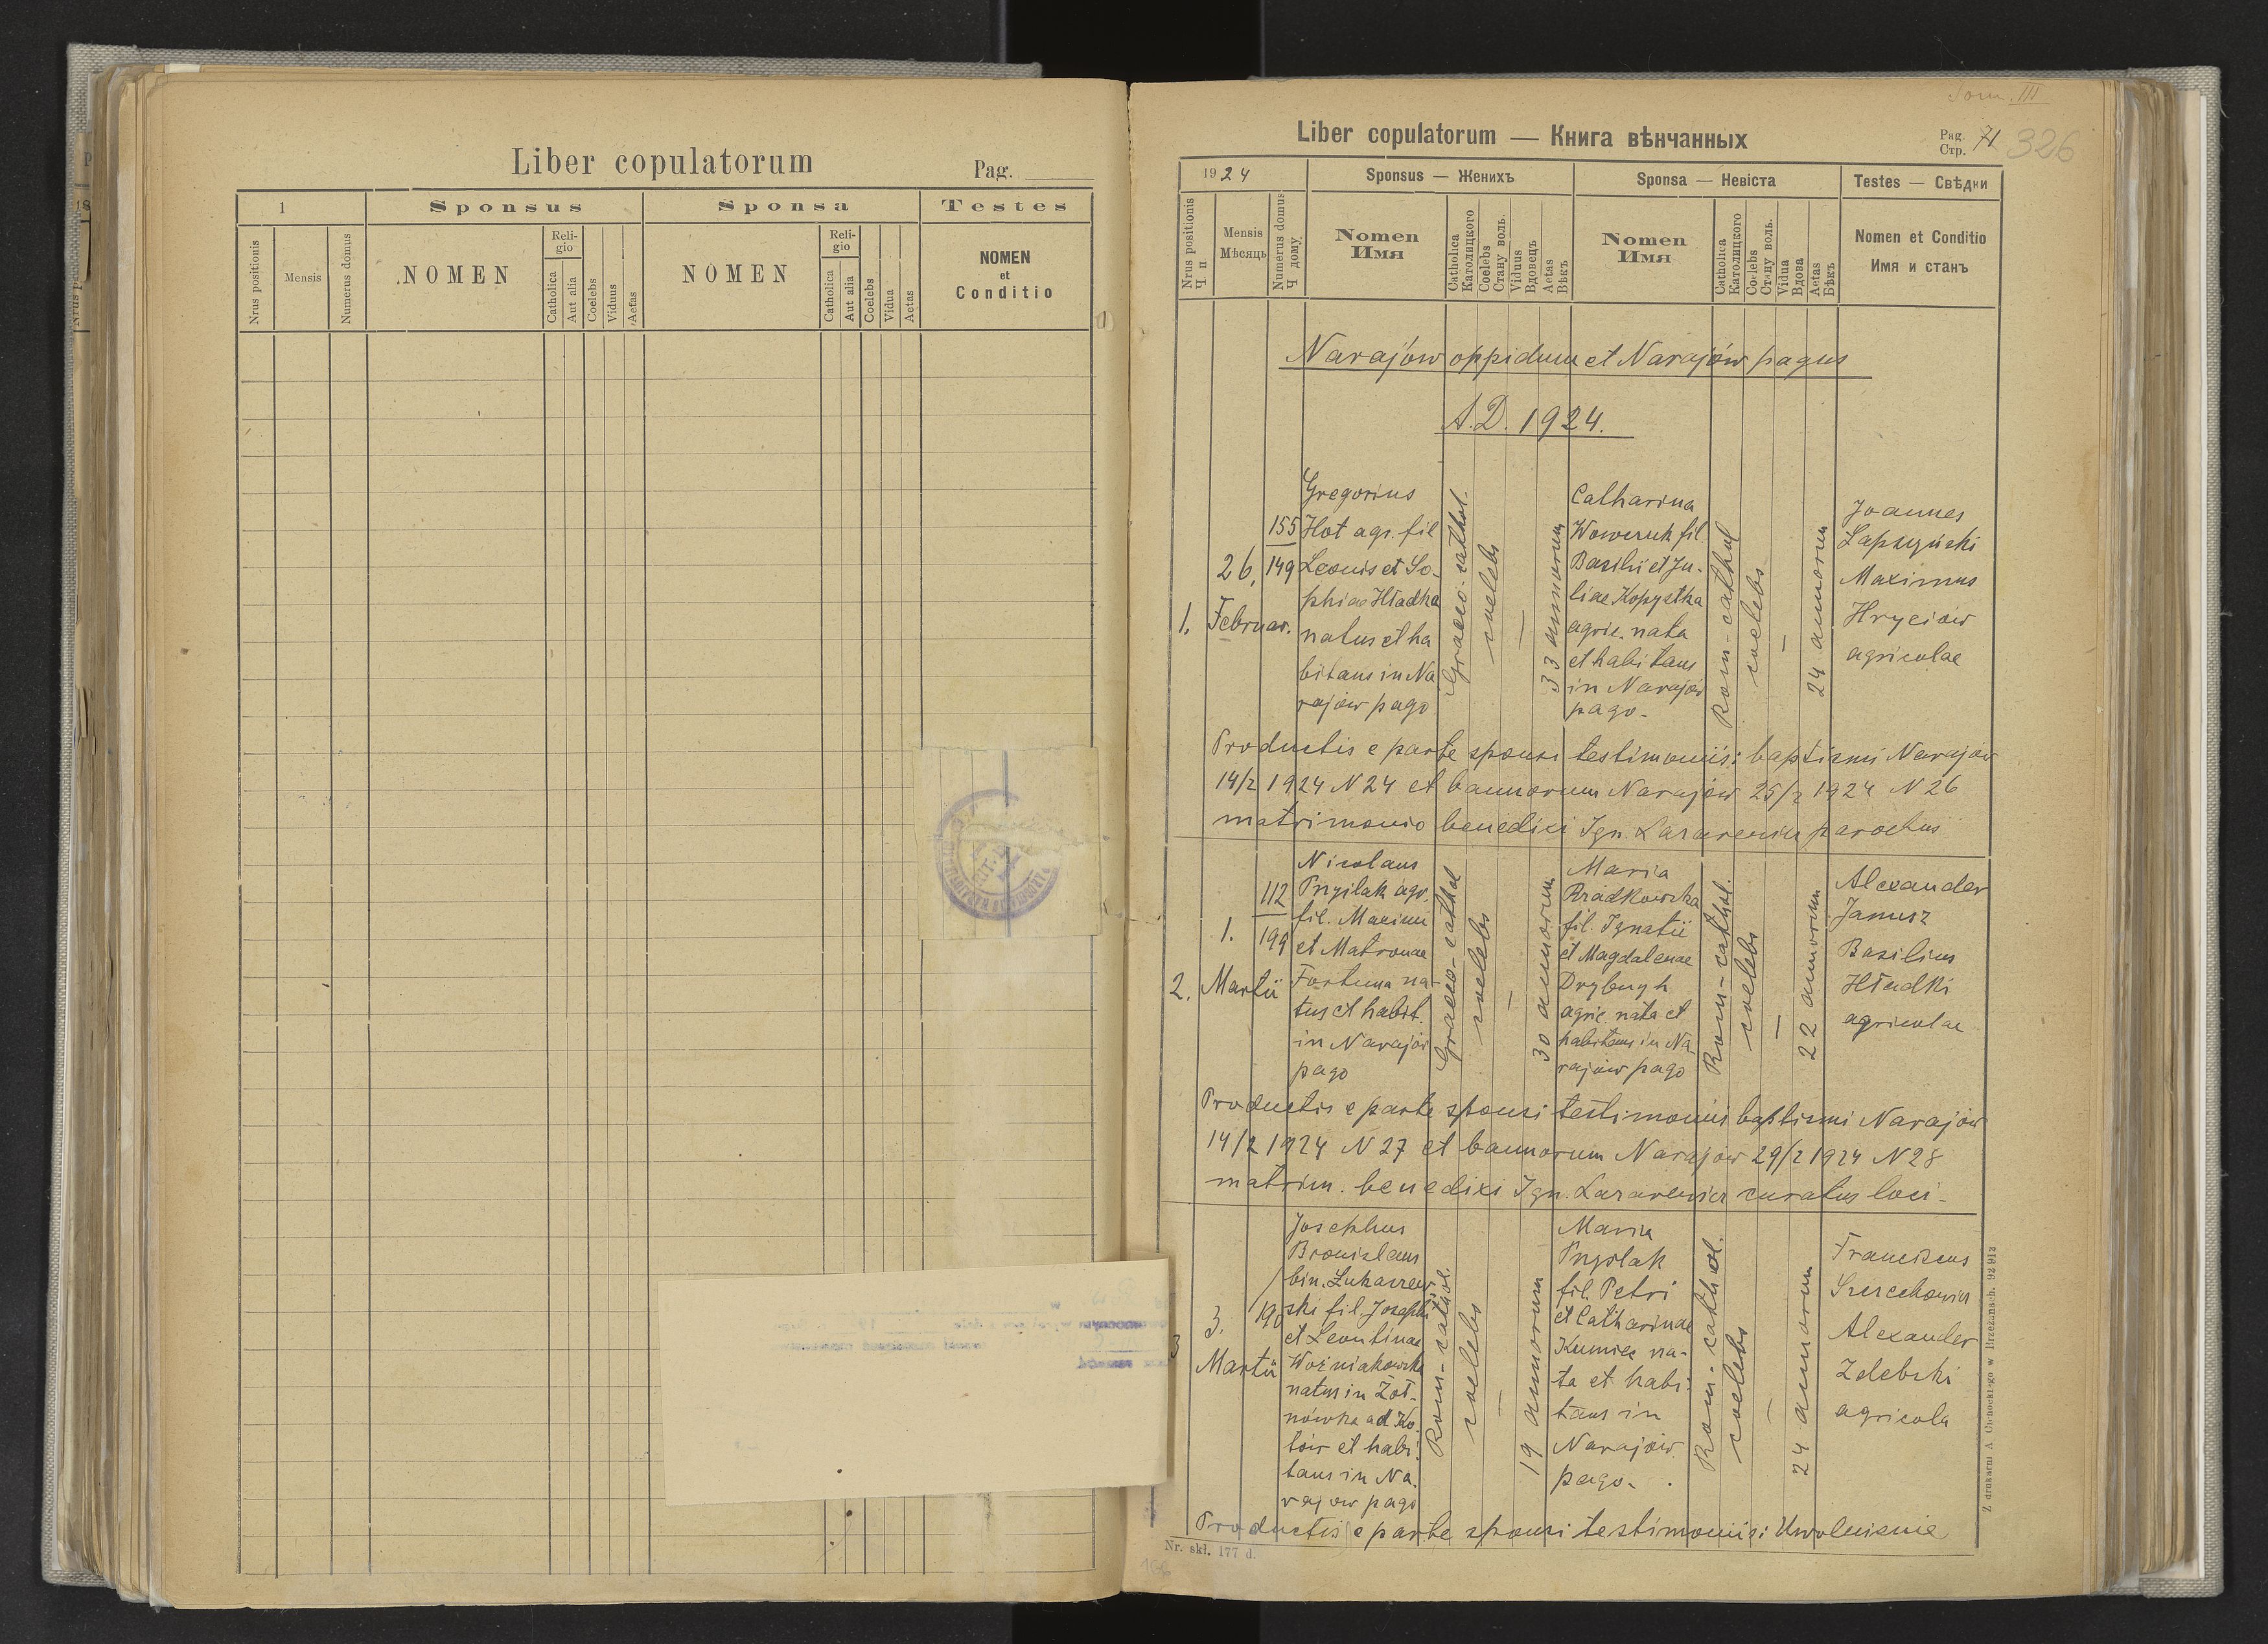 Liber copulatorum
Pag.
1
Sponsus
Sponsa
Testes
Nrus positionis
Mensis
Numerus domus
NOMEN
Religio
Catholica
Aut alia
Coelebs
Viduus
Aetas
NOMEN
Religio
Catholica
Aut alia
Coelebs
Vidua
Aetas
NOMEN
et
Conditio
Tom. III
Liber copulatorum — Книга вѣнчанных
Pag.
Стр.
71
326
1924
Sponsus — Женихъ
Sponsa — Невіста
Testes — Свѣдки
Nrus positionis
Ч. п.
Mensis
Мѣсяць
Numerus domus
Ч дому
Nomen
Имя
Catholica
Католицкого
Coelebs
Стану воль.
Viduus
Вдовецъ
Aetas
Вѣкъ
Nomen
Имя
Catholica
Католицкого
Coelebs
Стану воль.
Vidua
Вдова
Aetas
Вѣкъ
Nomen et Conditio
Имя и станъ
Narajów oppidum et Narajów pagus
A.D. 1924.
1.
26.
Februar.
155
149
Gregorius
Hot agr. fil
Leonis et So-
phiae Hładka
natus et ha
bitans in Na
rajów pago
Graeco-cathol.
coelebs
—
33 annorum
Catharina
Woweruk fil.
Basilii et Ju-
liae Kopystka
agric. nata
et habitans
in Narajów
pago-
Rom-cathol
coelebs
—
24 annorum
Joannes
Łapszyński
Maximus
Hryciów
agricolae
Productis e parte sponsi testimoniis: baptismi Narajów
14/2 1924 N 24 et bannorum Narajów 25/2 1924 N 26
matrimonio benedixi Ign. Lazarewicz parochus
2.
1.
Martii
112
199
Nicolaus
Pryślak agr.
fil. Maximi
et Matronae
Fortuna na-
tus et habit.
in Narajów
pago
Graeco-cathol
coelebs
—
30 annorum
Maria
Rządkowska
fil. Ignatii
et Magdalenae
Drybugh
agric. nata et
habitans in Na
rajów pago
Rom-cathol.
coelebs
—
22 annorum
Alexander
Janusz
Basilius
Hładki
agricolae
Productis e parte sponsi testimoniis baptismi Narajów
14/2 1924 N 27 et bannorum Narajów 29/2 1924 N 28
matrim. benedixi Ign. Lazarewicz curatus loci-
3
3.
Martii
190
Josephus
Bronislaus
bin. Łukaszew
ski fil. Josephi
et Leontinae
Woźniakowska
natus in Żoł-
nówka ad Ko-
tów et habi-
tans in Na.
rajów pago
Rom-cathol.
coelebs
—
19 annorum
Maria
Pryślak
fil. Petri
et Catharinae
Kumiec na-
ta et habi-
tans in
Narajów
pago-
Rom-cathol.
coelebs
—
24 annorum
Franciscus
Szerechowicz
Alexander
Zelebski
agricola
Productis e parte sponsi testimoniis: Uwolnienie
Nr. skł. 177 d.